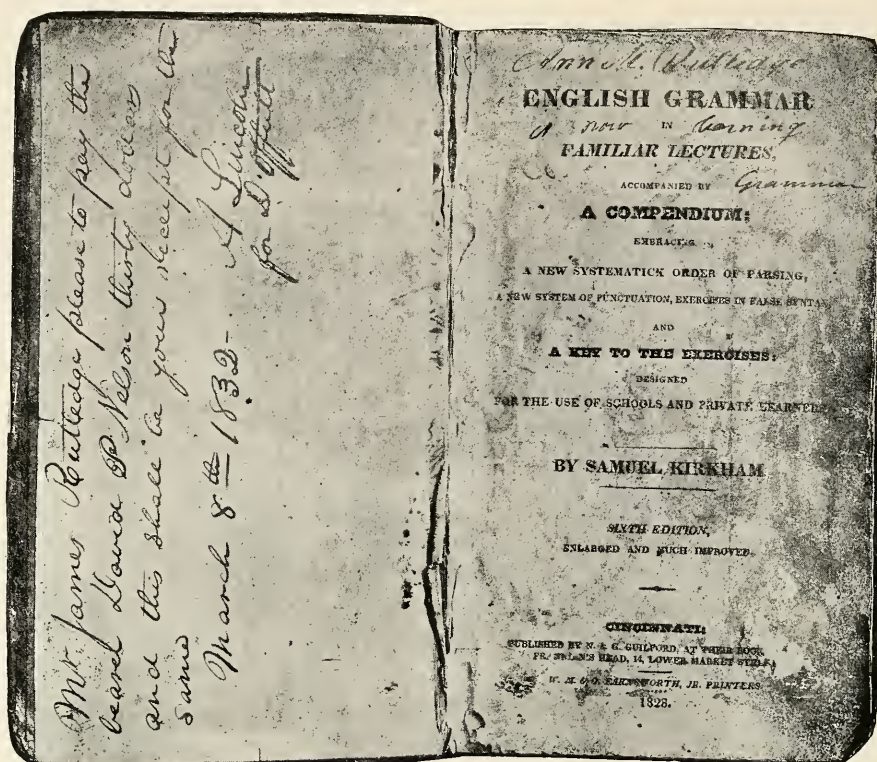 Mr. James Rutledge please to pay the
bearer David P. Nelson thirty dollars
and this shall be your receipt for the
same
March 8th 1832.
A Lincoln
for D. Offutt
Ann M. Rutledge
ENGLISH GRAMMAR
is now IN learning
FAMILIAR LECTURES,
ACCOMPANIED BY Grammar
A COMPENDIUM;
EMBRACING
A NEW SYSTEMATICK ORDER OF PARSING,
A NEW SYSTEM OF PUNCTUATION, EXERCISES IN FALSE SYNTAX,
AND
A KEY TO THE EXERCISES:
DESIGNED
FOR THE USE OF SCHOOLS AND PRIVATE LEARNERS
BY SAMUEL KIRKHAM
SIXTH EDITION,
ENLARGED AND MUCH IMPROVED.
CINCINNATI:
PUBLISHED BY N. & G. GUILFORD, AT THEIR BOOK
FRANKLIN'S HEAD, 14, LOWER MARKET STREET
W. M. & O. FARNSWORTH, JR. PRINTERS
1828.